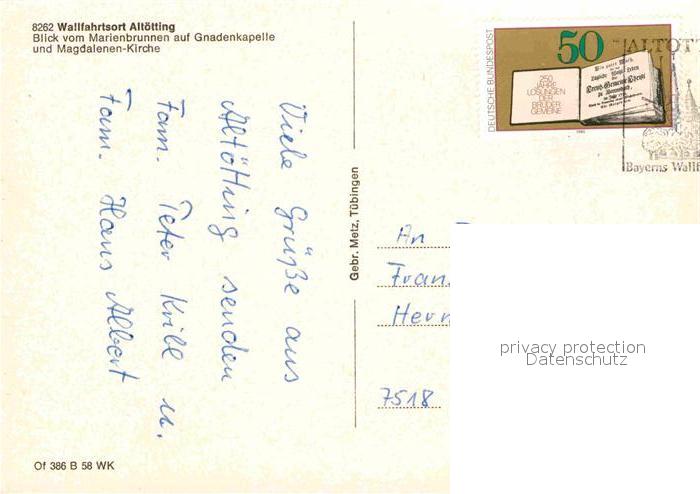 8262 Wallfahrtsort Altötting
Blick vom Marienbrunnen auf Gnadenkapelle
und Magdalenen-Kirche
DEUTSCHE BUNDESPOST
50
250
JAHRE
LOSUNGEN
DER
BRÜDER-
GEMEINE
Ein guter Muth,
1980
ALTÖT
Bayerns Wallf
Viele Grüße aus
Altötting senden
Fam. Peter Krill u.
Fam. Hans Albert
Gebr. Metz, Tübingen
An
Fran
Herr
7518
privacy protection
Datenschutz
Of 386 B 58 WK